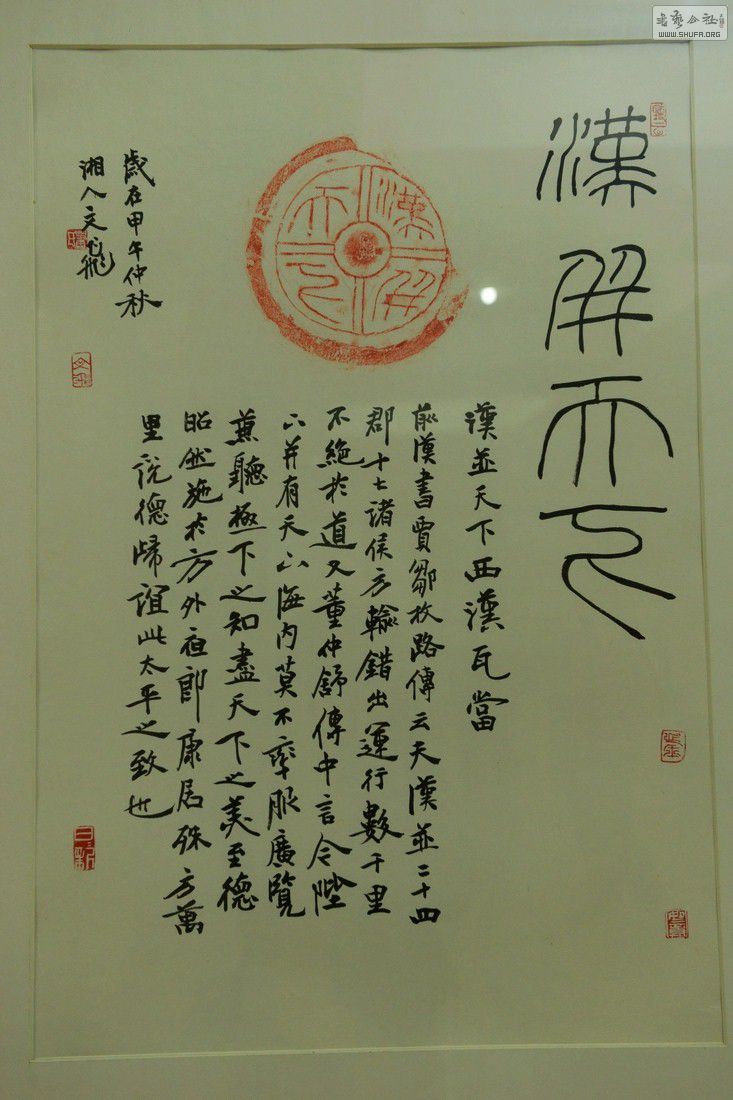 漢并天下
漢並天下西漢瓦當
前漢書賈鄒枚路傳云天漢並二十四
郡十七諸侯方輸錯出運行數千里
不絕於道又董仲舒傳中言今陛
下并有天下海内莫不率服廣覽
兼聽極下之知盡天下之美至德
昭然施於方外夜郎康居殊方萬
里說德歸誼此太平之致也
漢并天下
歲在甲午仲秋
湘人文飛
書藝公社
WWW.SHUFA.ORG